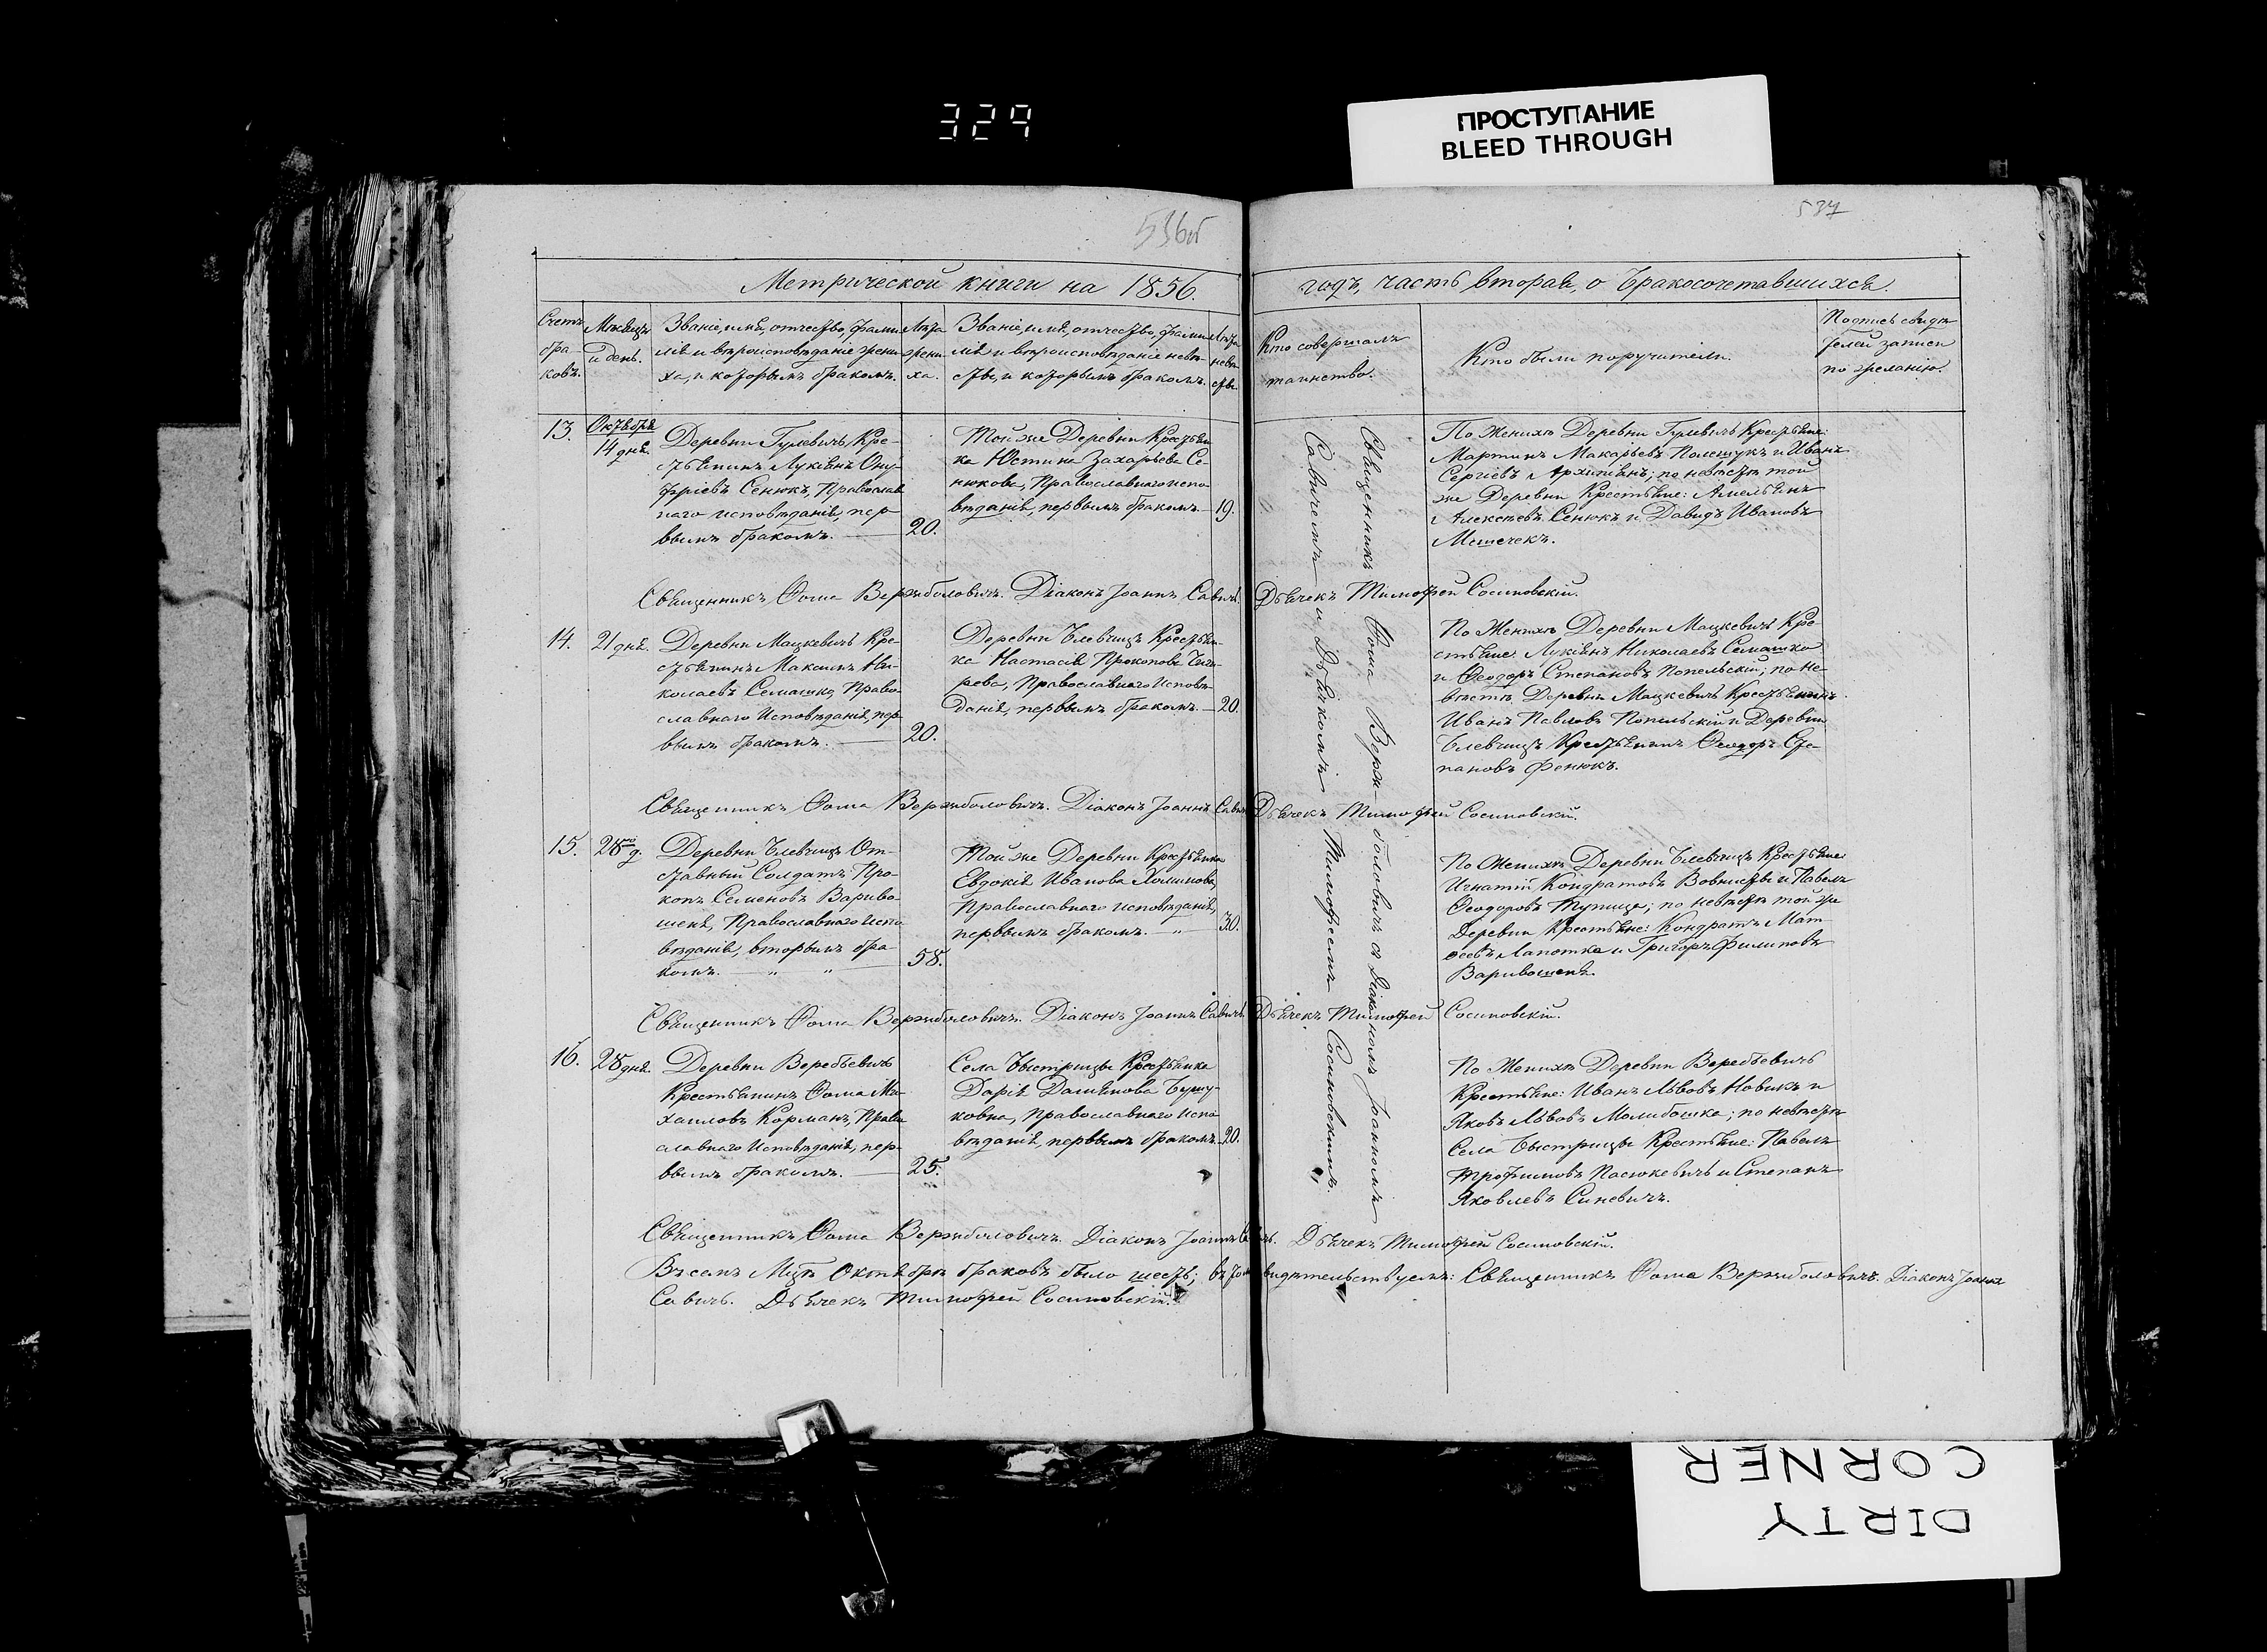 329
ПРОСТУПАНИЕ
BLEED THROUGH
537
Метрической книги на 1856.
годъ, часть вторая, о бракосочетавшихся.
Счетъ
бра-
ковъ.
Мѣсяцъ
и день.
Званіе, имя, отчество, фами-
лія и вѣроисповѣданіе жени-
ха, и которымъ бракомъ.
Лѣта
жени-
ха.
Званіе, имя, отчество, фами-
лія и вѣроисповѣданіе невѣ-
сты, и которымъ бракомъ.
Лѣта
невѣ-
сты.
Кто совершалъ
таинство.
Кто были поручители.
Подпись свидѣ-
телей записи
по желанію.
13.
Октября
14 дня.
Деревни Гулевичъ, Кре-
стьянинъ Лукіянъ Ону-
фріевъ Сенюкъ, Православ
наго исповѣданія, пер-
вымъ бракомъ.
20.
Той же Деревни Крестьян
ка Юстина Захарьева Се-
нюкова, Православнаго испо-
вѣданія, первымъ бракомъ.
19.
Священникъ Ѳома Верж-
боловичъ съ Діакономъ Іоанномъ
Савичемъ и Дьячкомъ Тимофеемъ Сосиновскимъ.
По Женихѣ Деревни Гулевичъ Крестьяне:
Мартинъ Макарьевъ Полещукъ и Иванъ
Сергіевъ Архипіянъ; по невѣстѣ той
же Деревни Крестьяне: Амельянъ
Алексѣевъ Сенюкъ и Давидъ Ивановъ
Мешечекъ.
Священникъ Ѳома Вержболовичъ. Діаконъ Іоаннъ Савичъ. Дьячекъ Тимофей Сосиновскій.
14.
21 дня.
Деревни Мацкевичъ Кре-
стьянинъ Максимъ Ни-
колаевъ Семашко, Право-
славнаго Исповѣданія, пер-
вымъ бракомъ.
20.
Деревни Блевчицъ Крестьян-
ка Настасія Прокопова
Православнаго Исповѣ-
данія, первымъ бракомъ.
20.
По Женихѣ Деревни Мацкевичъ Кре-
стьяне: Лукіянъ Николаевъ Семашко
и Ѳеодоръ Степановъ Попельскій; по Не-
вѣстѣ Деревни Мацкевичъ Крестьянинъ
Иванъ Павловъ Попельскій и Деревни
Блевчицъ Крестьянинъ Ѳеодоръ Сте-
пановъ Фенюкъ.
Священникъ Ѳома Вержболовичъ. Діаконъ Іоаннъ Савичъ Дьячекъ Тимофей Сосиновскій.
15.
28го д.
Деревни Блевчицъ От-
ставный Солдатъ Про-
копъ Семеновъ Вариво-
шеня, Православнаго Испо-
вѣданія, вторымъ бра-
комъ.
58.
Той же Деревни Крестьянка
Евдокія Иванова Холимова,
Православнаго исповѣданія,
первымъ бракомъ.
30.
По Женихѣ Деревни Блевчицъ Крестьяне
Игнатій Кондратовъ и Павелъ
Ѳеодоровъ Тупица; по невѣстѣ той же
Деревни Крестьяне: Кондратъ Мат-
ѳеевъ Лапотка и Григоръ Филиповъ
Варивошеня.
Священникъ Ѳома Вержболовичъ. Діаконъ Іоаннъ Савичъ. Дьячекъ Тимофей Сосиновскій.
16.
28 дня.
Деревни Воробьевичъ
Крестьянинъ Ѳома Ми-
хаиловъ Корманъ, Право-
славнаго Исповѣданія, пер-
вымъ бракомъ.
25.
Села Быстрицы Крестьянка
Дарія Даміянова
Православнаго Испо-
вѣданія, первымъ бракомъ.
20.
По Женихѣ Деревни Воробьевичъ
Крестьяне: Иванъ Львовъ Новикъ и
Яковъ Львовъ Молибошка; по невѣстѣ
Села Быстрицы Крестьяне: Павелъ
Трофимовъ Пасюкевичъ и Степанъ
Яковлевъ Синевичъ.
Священникъ Ѳома Вержболовичъ. Діаконъ Іоаннъ Савичъ. Дьячекъ Тимофей Сосиновскій.
Въ семъ Мцѣ Октябрѣ браковъ было шесть; въ томъ свидѣтельствуемъ: Священникъ Ѳома Вержболовичъ. Діаконъ Іоаннъ
Савичъ. Дьячекъ Тимофей Сосиновскій.
DIRTY
CORNER